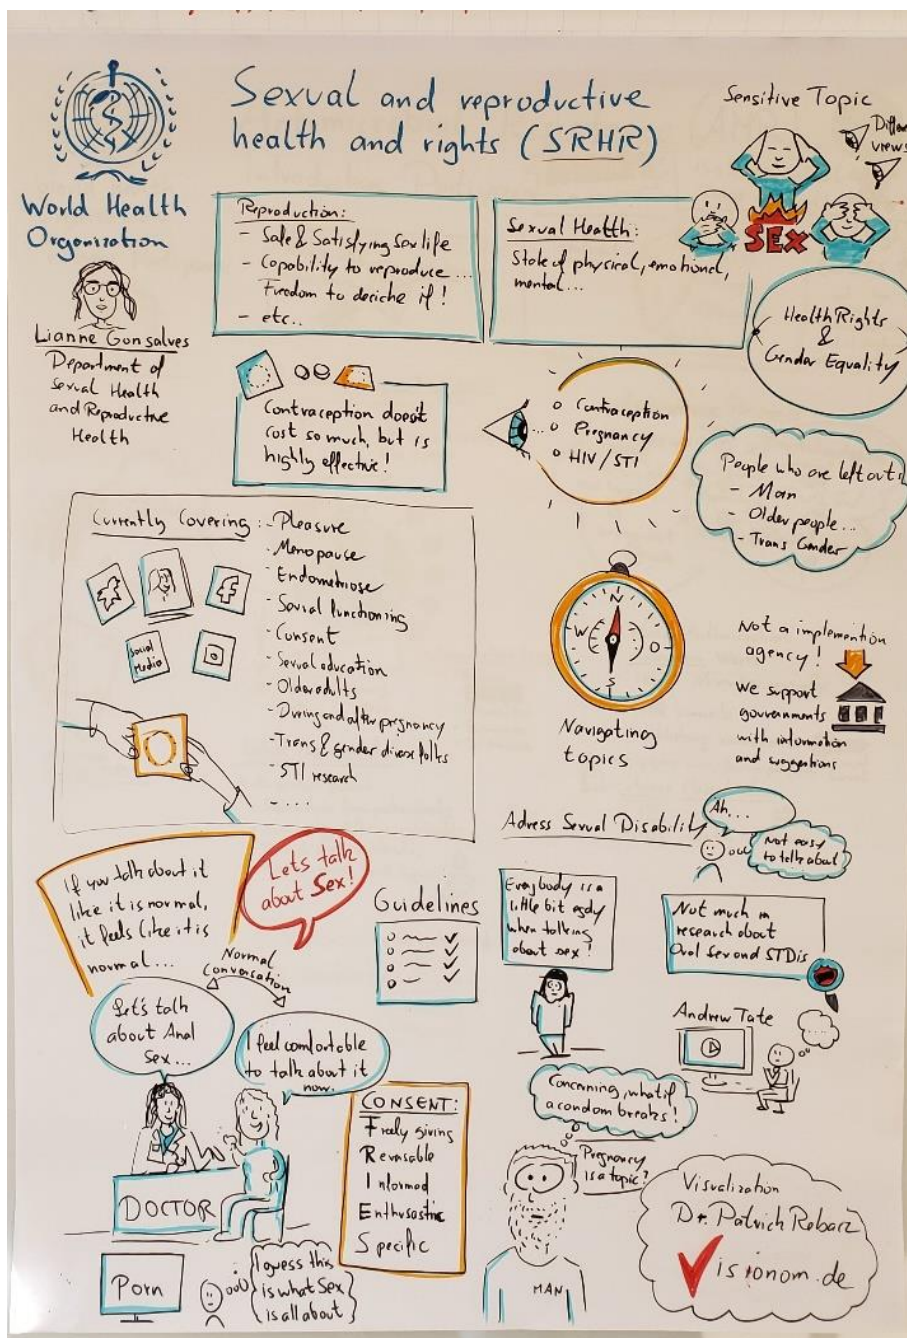 Sexual and reproductive
health and rights (SRHR)
World Health
Organization
Lianne Gonsalves
Department of
Sexual Health
and Reproductive
Health
Sensitive Topic
Different
views
SEX
Reproduction:
- Safe & Satisfying Sex life
- Capability to reproduce...
Freedom to deciche if!
- etc..
Sexual Health:
State of physical, emotional,
mental...
Health Rights
&
Gender Equality
Contraception doesn't
cost so much, but is
highly effective!
Contraception
Pregnancy
HIV/STI
People who are left out:
- Man
- Older people...
- Trans Gender
Currently Covering:
- Pleasure
- Menopause
- Endometriose
- Social functioning
- Consent
- Sexual education
- Older adults
- During and after pregnancy
- Trans & gender diverse folks
- STI research
- ....
Social
Media
N
W
O
S
Navigating
topics
Not a implemention
agency!
We support
governments
with information
and suggestions
Adress Sexual Disability
Ah...
Not easy
to talk about
If you talk about it
like it is normal,
it feels like it is
normal...
Lets talk
about Sex!
Normal
Conversation
Guidelines
Everybody is a
little bit
when talking
about sex!
Not much in
research about
Oral Sex and STDis
Let's talk
about Anal
Sex...
I feel comfortable
to talk about it
now.
DOCTOR
Andrew Tate
CONSENT:
Freely giving
Revasable
Informed
Enthusastic
Specific
Concerning, what if
a condom breaks!
Pregnancy
is a topic?
MAN
Porn
I guess this
is what Sex
is all about
Visualization
Dr. Patrich Rebacz
visionom.de